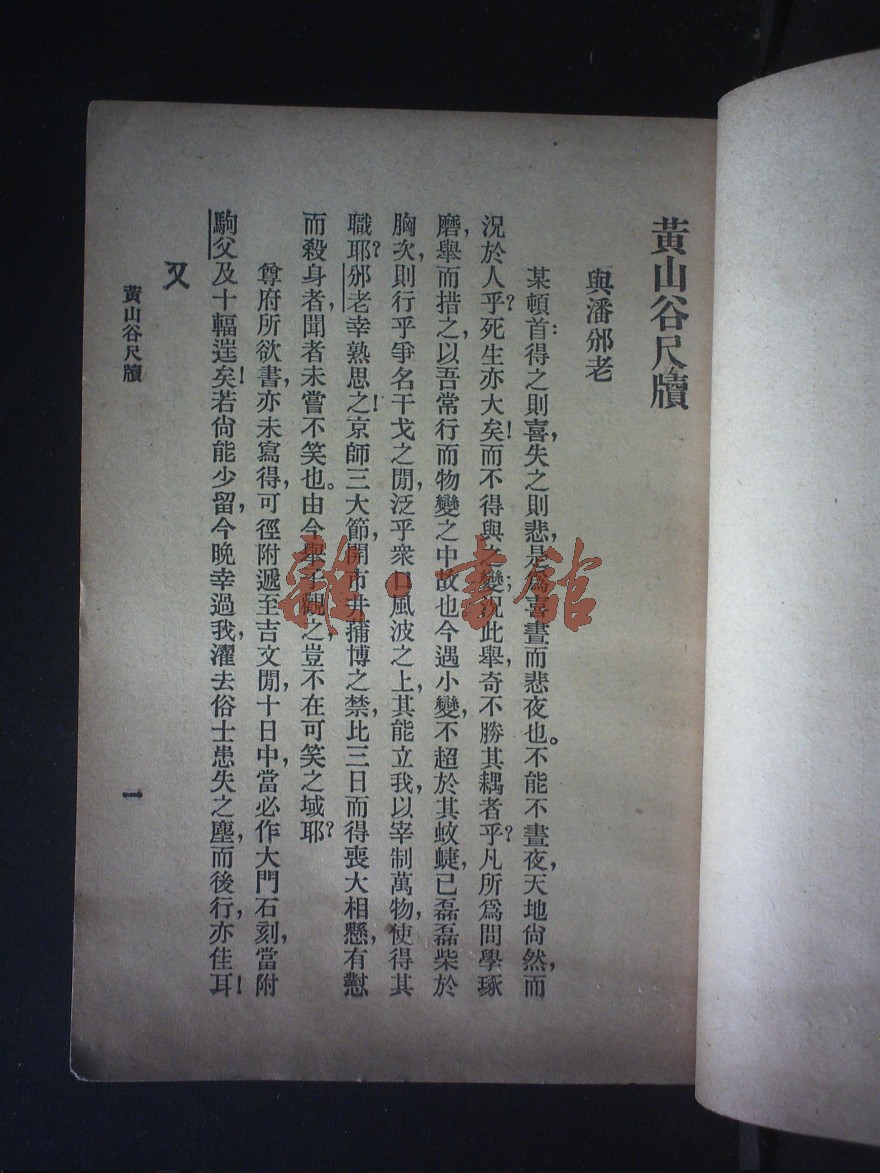 黃山谷尺牘
與潘邠老
某頓首:得之則喜,失之則悲,是爲喜晝而悲夜也。不能不晝夜,天地尙然,而
況於人乎?死生亦大矣!而不得與之變;況此舉,奇不勝其耦者乎?凡所爲問學琢
磨,舉而措之,以吾常行而物變之中故也今遇小變,不超於其蚊䗽,已磊磊柴於
胸次,則行乎爭名干戈之閒,泛乎衆口風波之上,其能立我,以宰制萬物,使得其
職耶?邠老幸熟思之!京師三大節,開市井蒱博之禁,比三日而得喪大相懸,有懟
而殺身者,聞者未嘗不笑也。由今舉子觀之,豈不在可笑之域耶?
尊府所欲書,亦未寫得,可徑附遞至吉文閒,十日中,當必作大門石刻,當附
駒父及十輻迋矣!若尙能少留,今晚幸過我,濯去俗士患失之塵,而後行,亦佳耳!
又
黃山谷尺牘
一
雜·書館